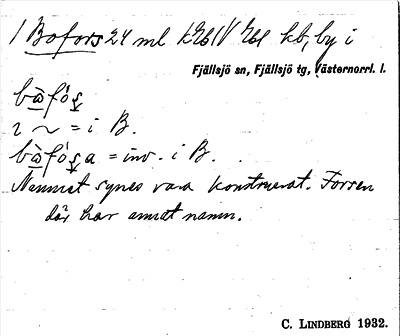 1 Bofors 24 ml kb, by i
Fjällsjö sn, Fjällsjö tg, Västernorrl. l.
i ~ = i B.
= inv. i B.
Namnet synes vara konstruerat. Forsen
där har annat namn.
C. LINDBERG 1932.